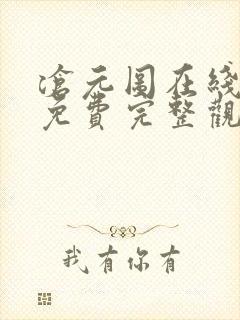 滄元图在綫
免費完整觀
我有你有